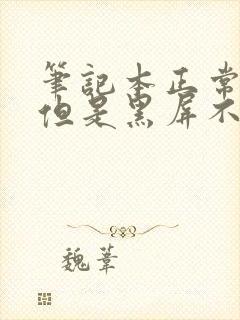 筆記本正常
但是黑屏不
魏葦